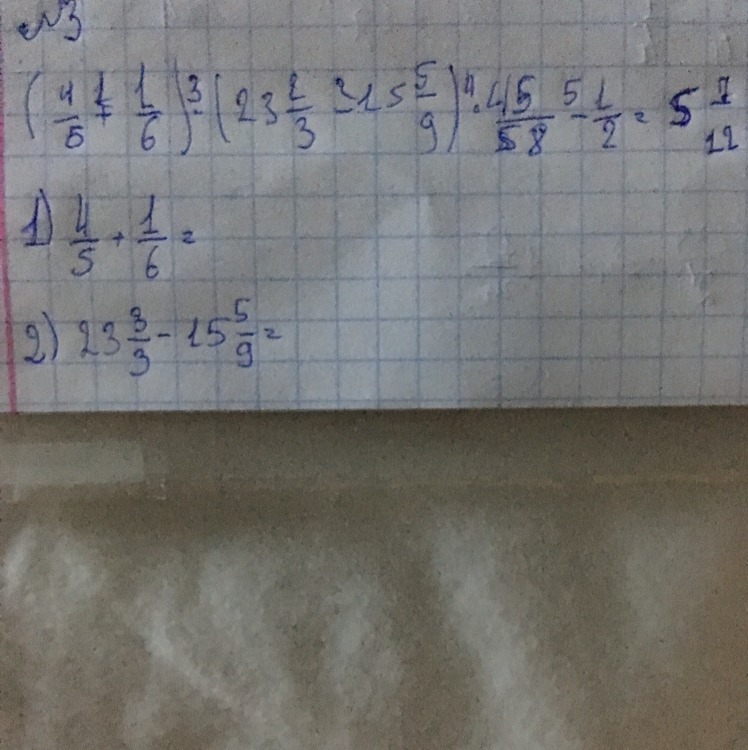 №3
(4/5 +¹ 1/6) ·³ (23 2/3 -² 15 5/9) ·⁴ 45/58 -⁵ 1/2 = 5 7/12
1) 4/5 + 1/6 =
2) 23 3/3 - 15 5/9 =